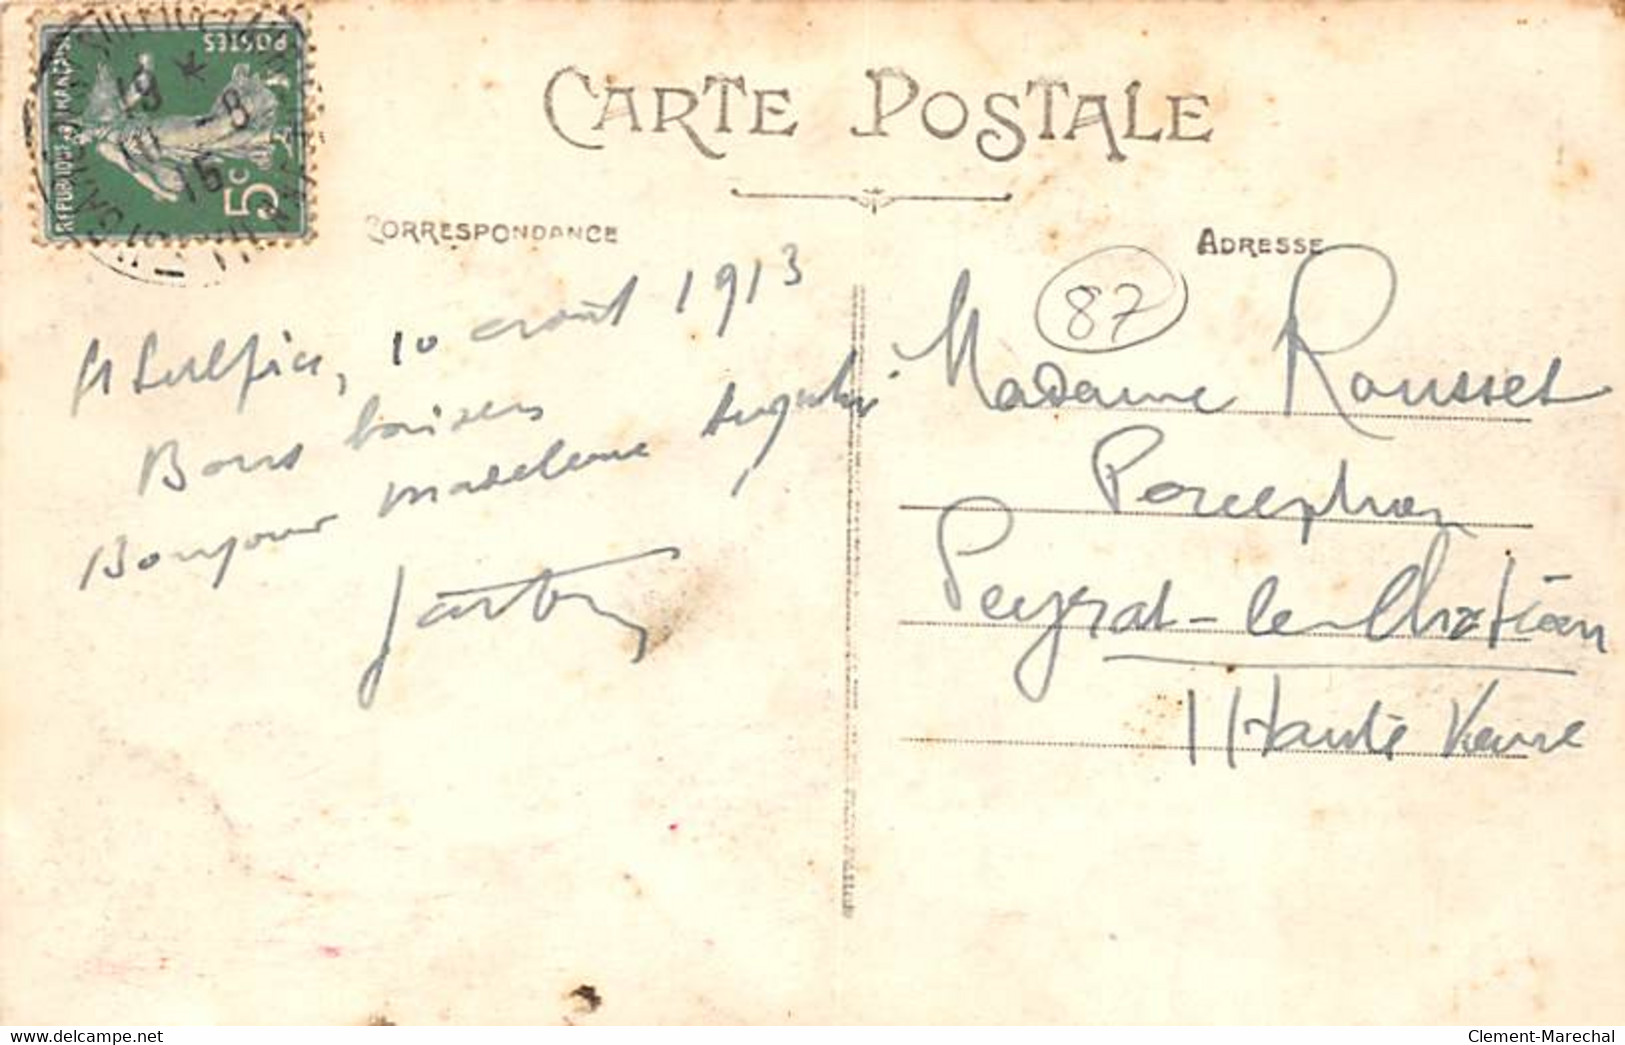 POSTES
REPUBLIQUE FRANÇAISE
5c
19 *
-8
15
CARTE POSTALE
CORRESPONDANCE
ADRESSE
87
St Sulpice, 10 août 1913
Bons baisers
Bonjour Madeleine
Madame Rousset
Perception
Peyrat-le-Château
Haute Vienne
www.delcampe.net
Clement-Marechal